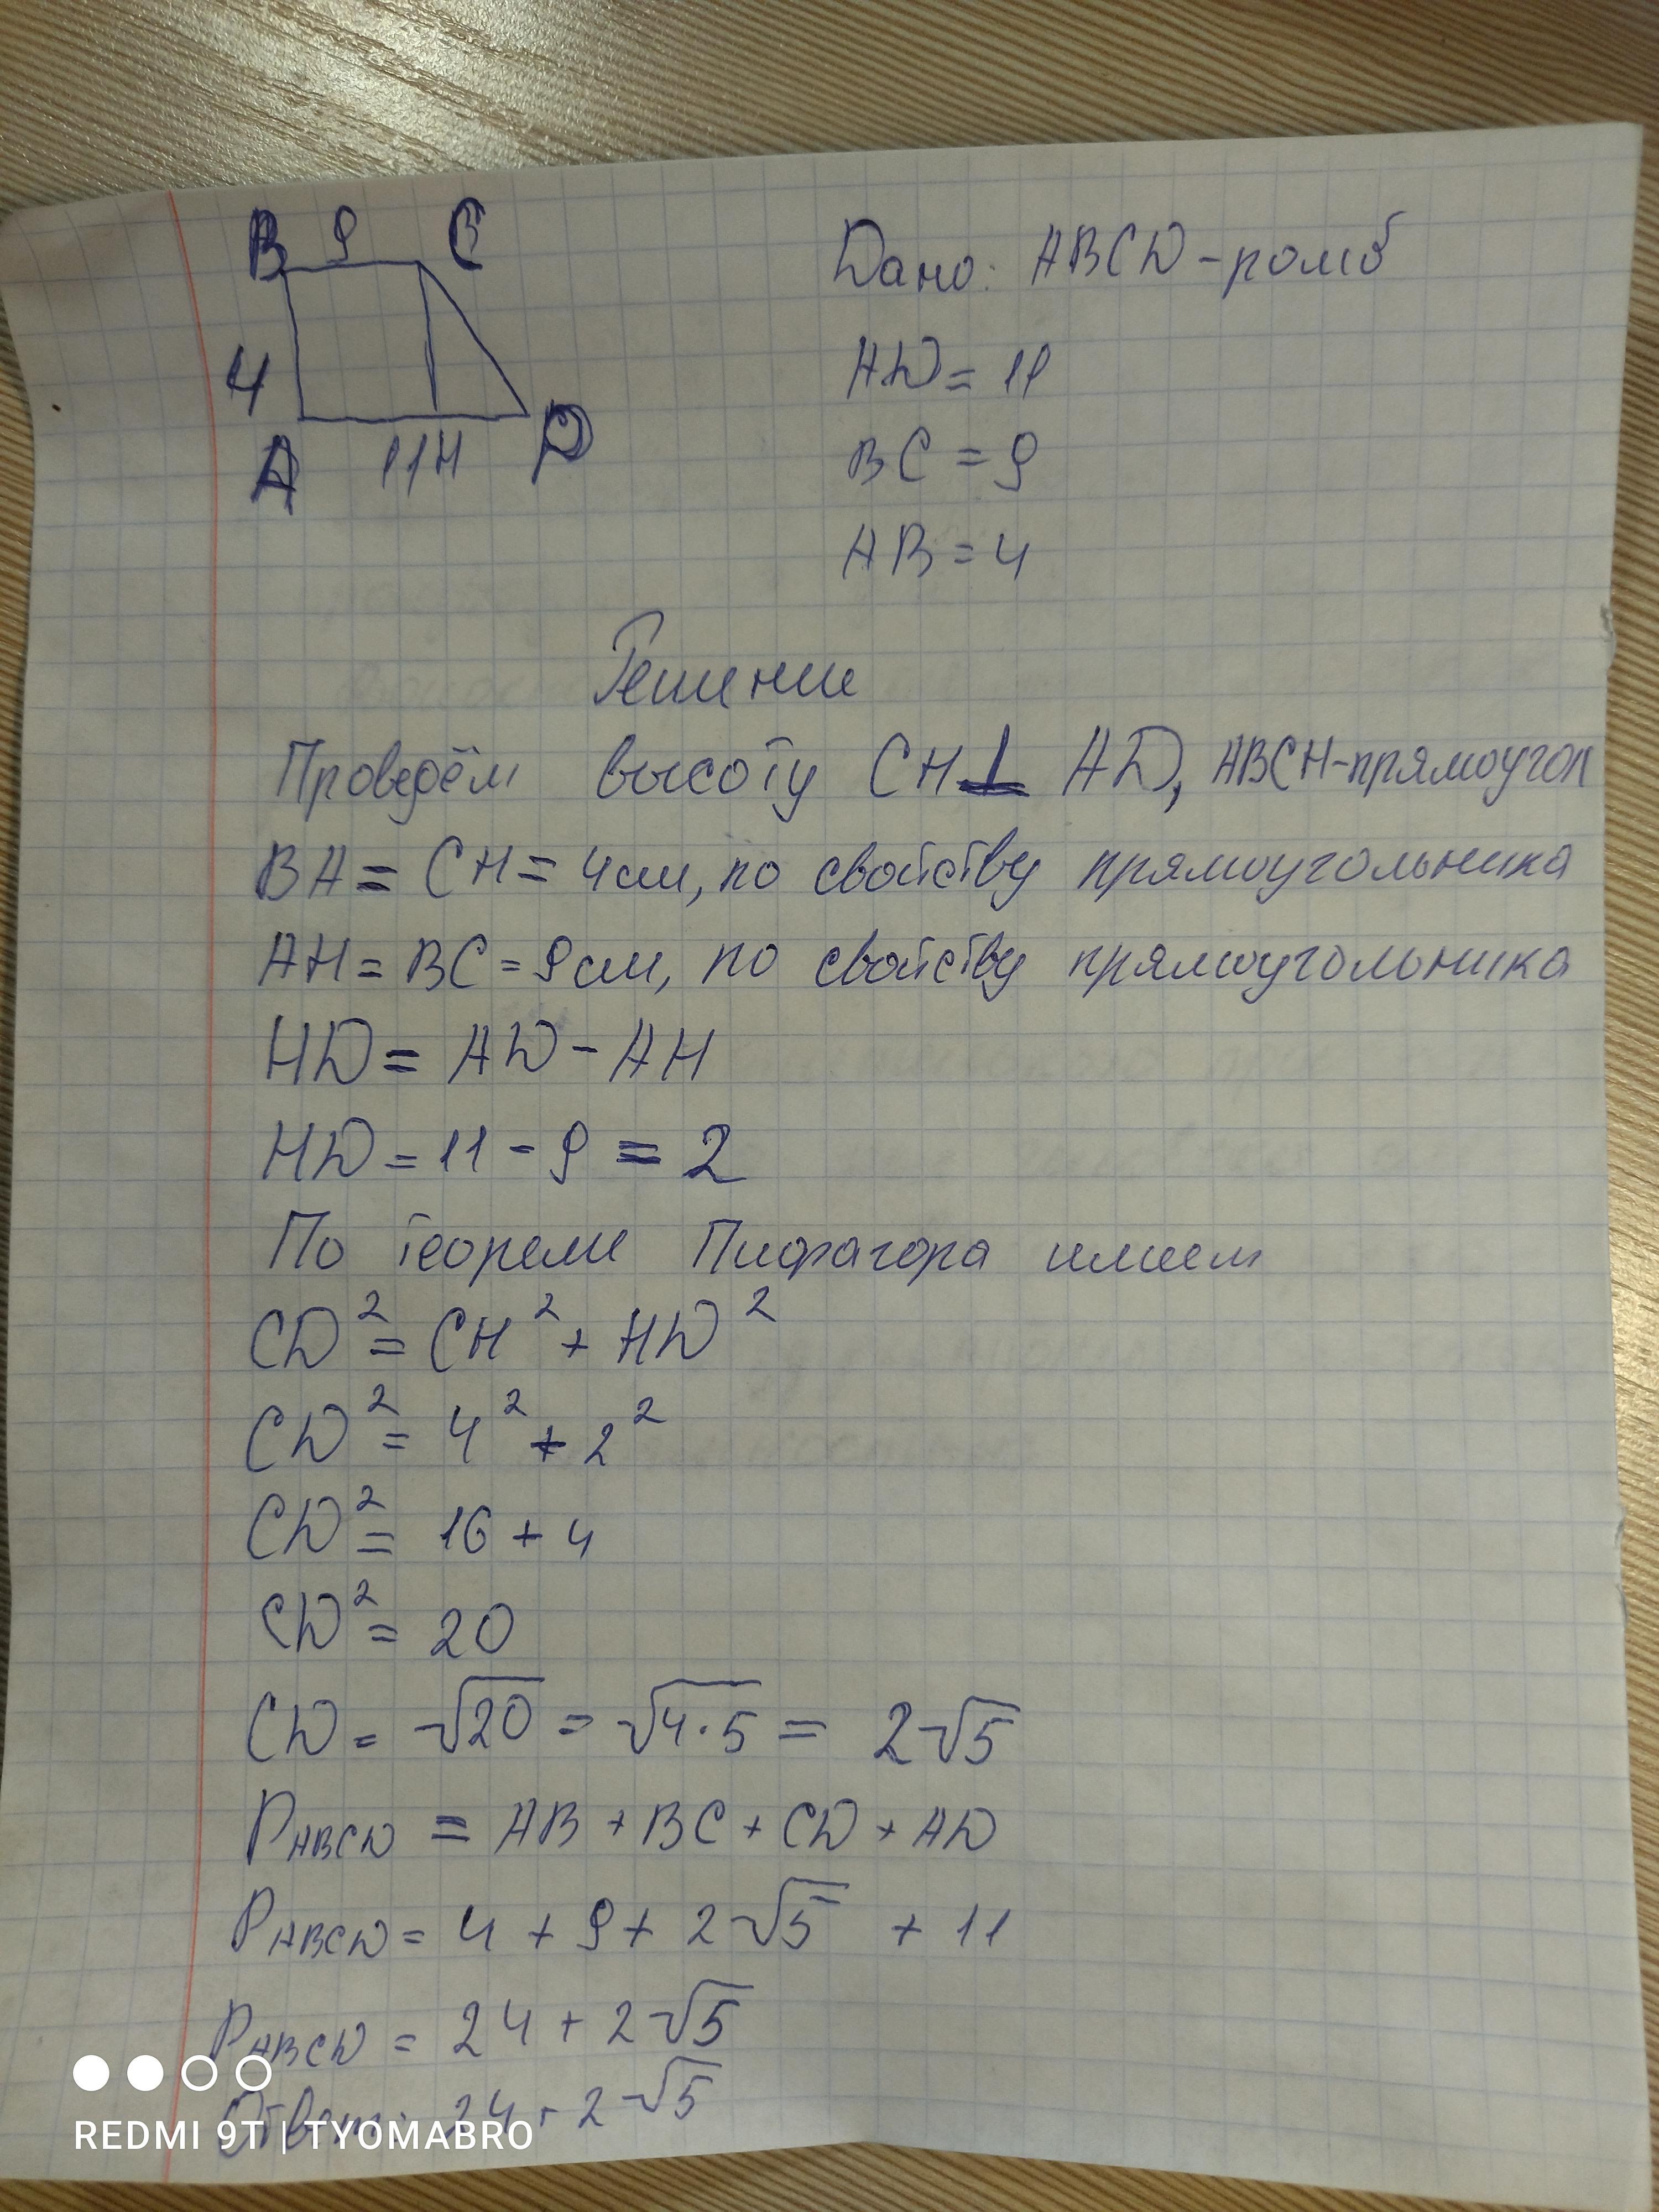 B 9 C
4
A 11 H D
Дано: ABCD-ромб
AD = 11
BC = 9
AB = 4
Решение
Проведём высоту CH ⊥ AD, ABCH-прямоугол
BA = CH = 4см, по свойству прямоугольника
AH = BC = 9см, по свойству прямоугольника
HD = AD - AH
HD = 11 - 9 = 2
По теореме Пифагора имеем
CD² = CH² + HD²
CD² = 4² + 2²
CD² = 16 + 4
CD² = 20
CD = √20 = √4·5 = 2√5
PABCD = AB + BC + CD + AD
PABCD = 4 + 9 + 2√5 + 11
PABCD = 24 + 2√5
Ответ: 24 + 2√5
REDMI 9T | TYOMABRO